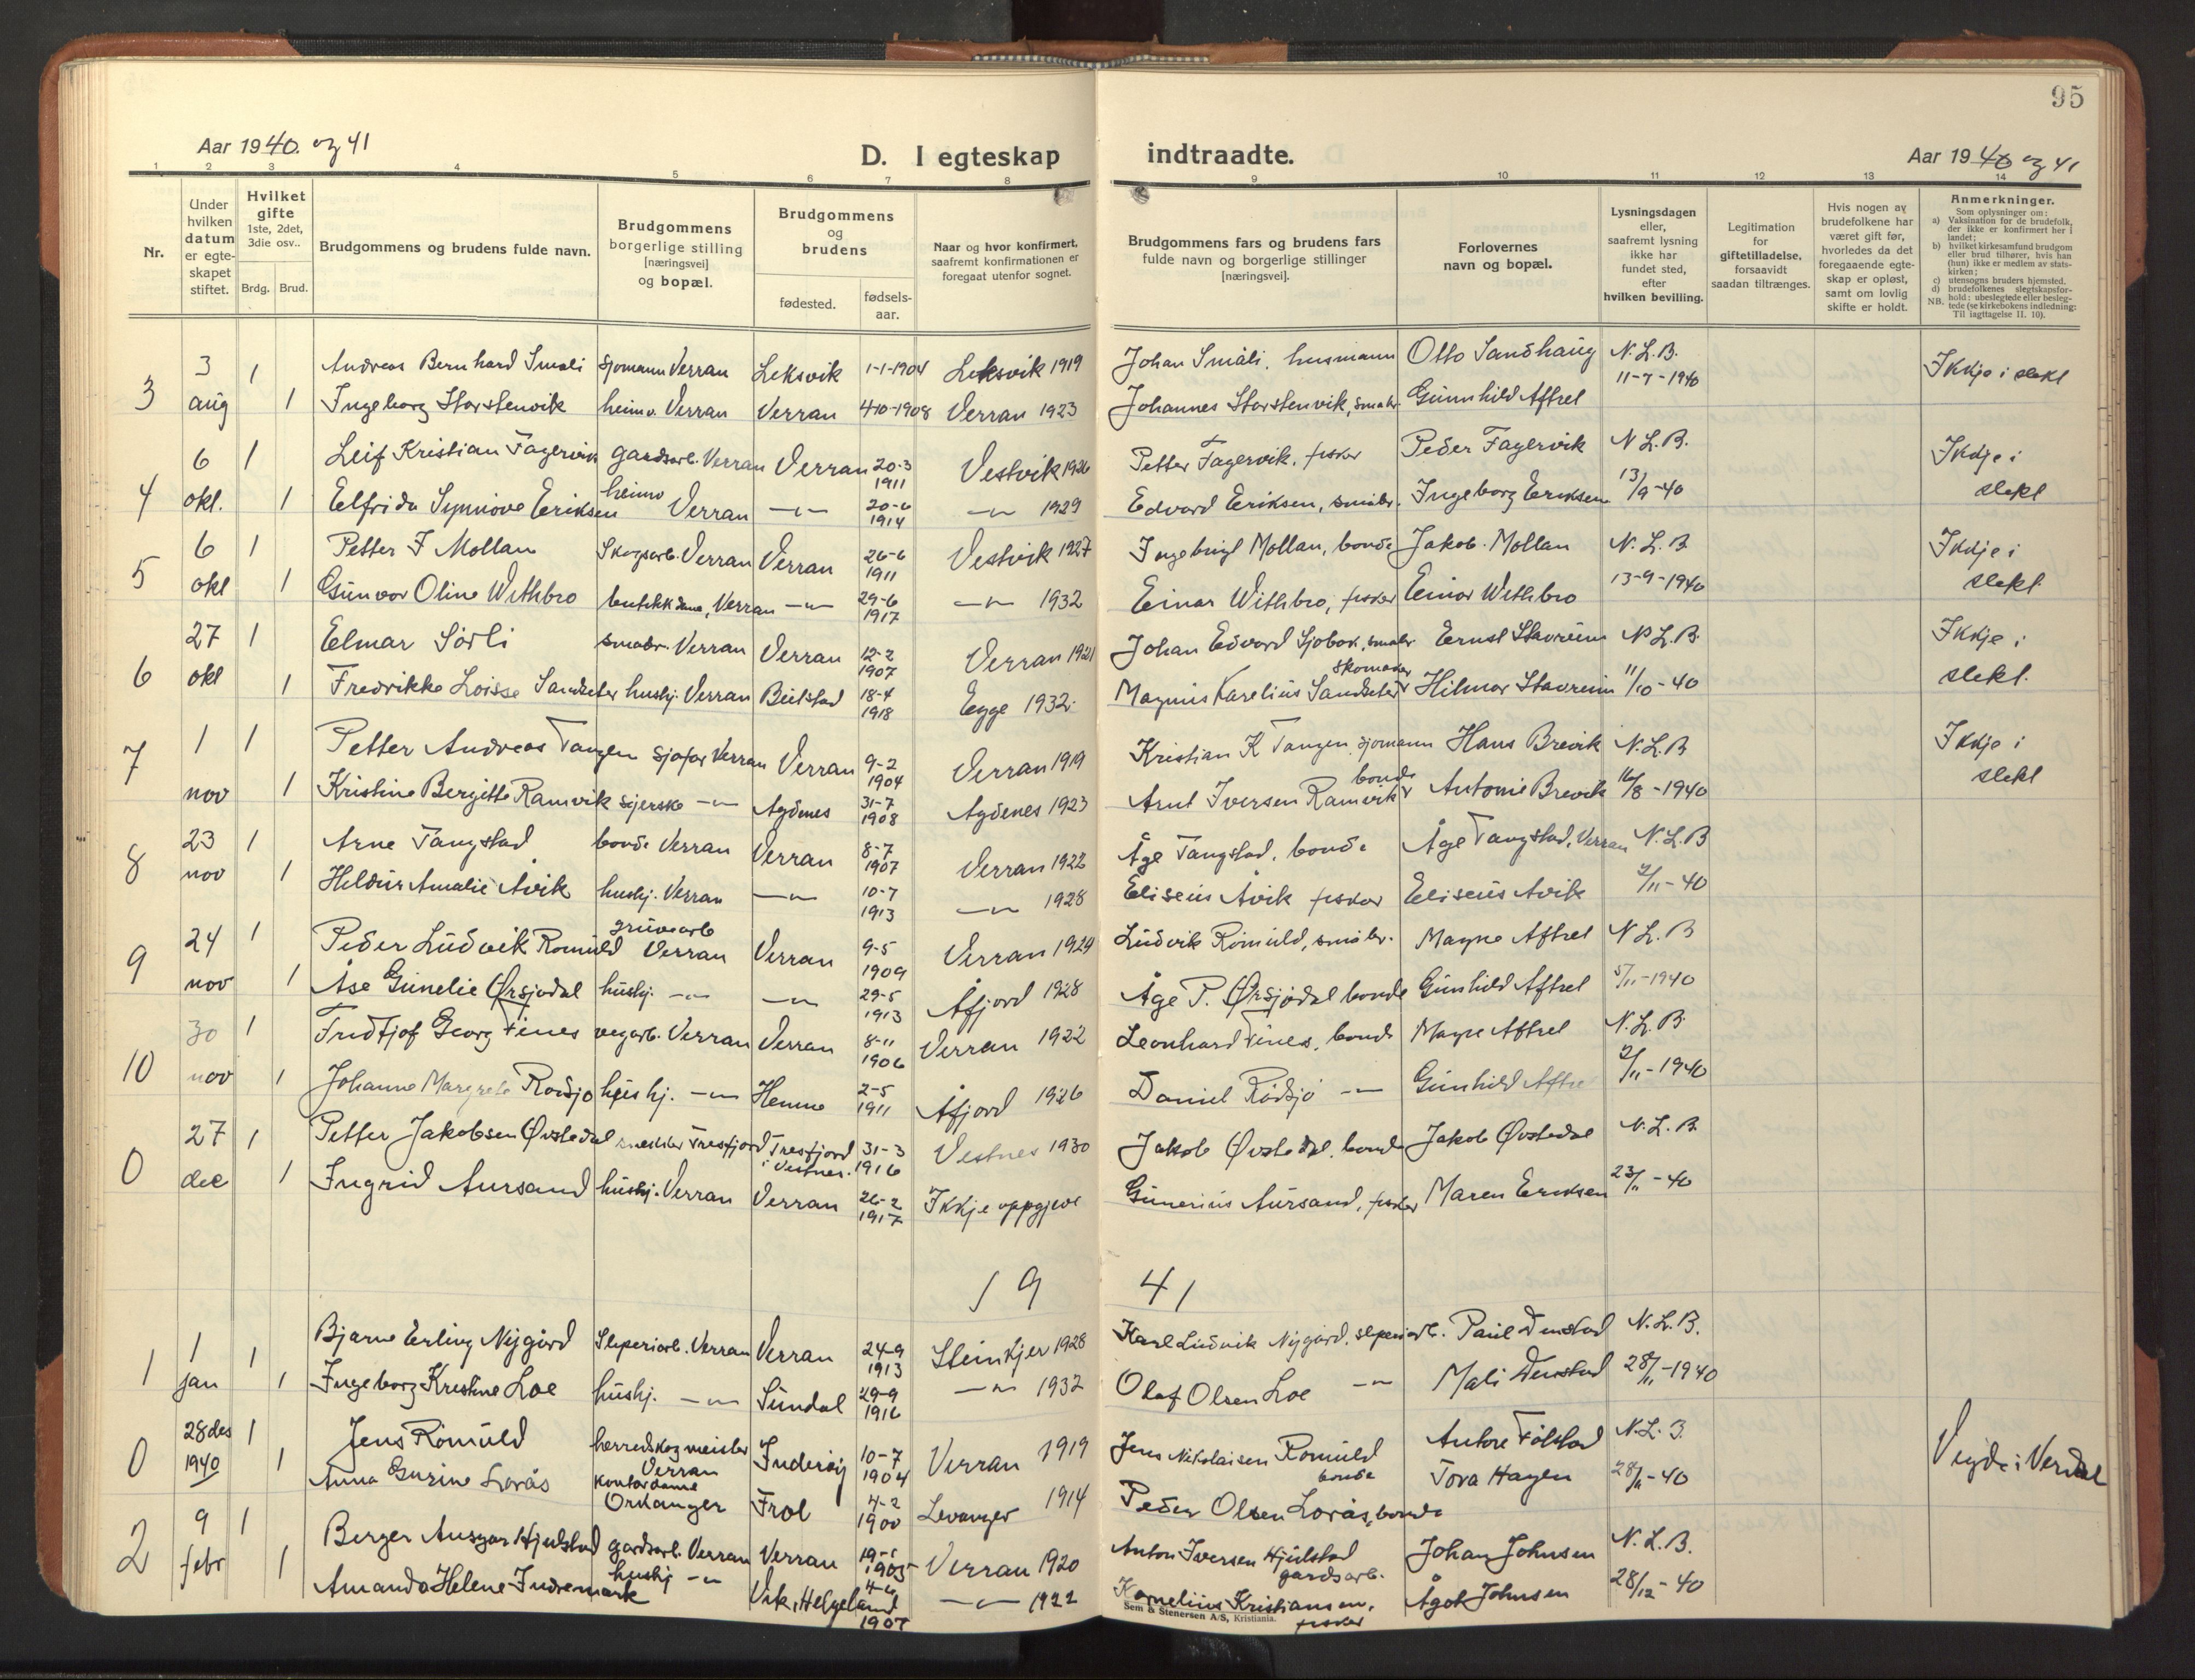 95
Aar 1940. og 41
D. I egteskap indtraadte.
Aar 1940 og 41
1 2 3 4 5 6 7 8 9 10 11 12 13 14
Nr.
Under hvilken datum er egte-skapet stiftet.
Hvilket gifte 1ste, 2det, 3die osv..
Brdg. Brud.
Brudgommens og brudens fulde navn.
Brudgommens borgerlige stilling [næringsvei] og bopæl.
Brudgommens og brudens
fødested.
fødsels-aar.
Naar og hvor konfirmert, saafremt konfirmationen er foregaat utenfor sognet.
Brudgommens fars og brudens fars fulde navn og borgerlige stillinger [næringsvei].
Forlovernes navn og bopæl.
Lysningsdagen eller, saafremt lysning ikke har fundet sted, efter hvilken bevilling.
Legitimation for giftetilladelse, forsaavidt saadan tiltrænges.
Hvis nogen av brudefolkene har været gift før, hvorledes da det foregaaende egte-skap er opløst, samt om lovlig skifte er holdt.
Anmerkninger.
Som oplysninger om:
a) Vaksination for de brudefolk, der ikke er konfirmert her i landet;
b) hvilket kirkesamfund brudgom eller brud tilhører, hvis han (hun) ikke er medlem av stats-kirken;
c) utensogns bruders hjemsted.
d) brudefolkenes slegtskapsfor-hold: ubeslegtede eller besleg-tede (se kirkebokens indledning: Til iagttagelse II. 10).
NB.
3 3 aug 1 Andreas Bernhard Småli sjomann Verran Leksvik 1-1-1904 Leksvik 1919 Johan Småli, husmann Otto Sandhaug N.L.B. 11-7-1940 Ikkje i slekt
1 Ingeborg Storstenvik heimv. Verran Verran 4-10-1908 Verran 1923 Johannes Storstenvik, småbr. Gunnhild Aftret
4 6 okt. 1 Leif Kristian Fagervik gardsarb. Verran Verran 20-3 1911 Vestvik 1926 Petter Fagervik, fisker Peder Fagervik N.L.B. 13/9-40 Ikkje i slekt
1 Elfrida Synnöve Eriksen heimv Verran —"— 20-6 1914 —"— 1929 Edvard Eriksen, småbr. Ingeborg Eriksen
5 6 okt 1 Petter F Mollan Skogsarb. Verran Verran 26-6 1911 Vestvik 1927 Ingebrigt Mollan, bonde Jakob Mollan N.L.B. 13-9-1940 Ikkje i slekt.
1 Gunvor Oline Withbro butikkdame, Verran —"— 29-6 1917 —"— 1932 Einar Withbro, fisker Einar Withbro
6 27 okt 1 Elmar Sørli småbr. Verran Verran 12-2 1907 Verran 1921 Johan Edvard Sjobak, småbr Ernst Stavrum N.L.B. 11/10-40 Ikkje i slekt.
1 Fredrikke Loisse Sandseter hushj. Verran Beitstad 18-4 1918 Egge 1932. Magnus Karelius Sandseter skomaker Hilmar Stavrum
7 1 nov 1 Petter Andreas Tangen sjofør Verran Verran 9-2 1904 Verran 1919 Kristian K Tangen, sjomann Hans Brevik N.L.B 16/8-1940 Ikkje i slekt
1 Kristine Bergitte Ramvik sjerske —"— Agdenes 31-7 1908 Agdenes 1923 Arnt Iversen Ramvik bonde Antonie Brevik
8 23 nov 1 Arne Tangstad bonde Verran Verran 8-7 1907 Verran 1922 Åge Tangstad, bonde Åge Tangstad, Verran N.L.B 2/11-40
1 Hildur Amalie Åvik hushj. Verran —"— 10-7 1913 —"— 1928 Eliseus Åvik fisker Eliseus Avik
9 24 nov 1 Peder Ludvik Romuld gruvearb Verran Verran 9-5 1909 Verran 1924 Ludvik Romuld, småbr. Magne Aftret N.L.B 5/11-1940
1 Åse Gunelie Ørsjødal hushj. —"— —"— 29-5 1913 Åfjord 1928 Åge P. Ørsjødal bonde Gunhild Aftret
10 30 nov 1 Fridtjof Georg Fines vegarb. Verran Verran 8-11 1906 Verran 1922 Leonhard Fines, bonde Magne Aftret N.L.B. 2/11-1940
1 Johanne Margrete Rødsjø hushj. —"— Hemne 2-5 1911 Åfjord 1926 Daniel Rødsjø —"— Gunhild Aftre
0 27 dec 1 Petter Jakobsen Øvstedal snekker Tresfjord Tresfjord i Vestnes. 31-3 1916 Vestnes 1930 Jakob Øvstedal, bonde Jakob Øvstedal N.L.B. 23/11-40
1 Ingrid Aursand hushj. Verran Verran 26-2 1917 Ikkje oppgjeve Gunerius Aursand, fisker Maren Eriksen
19 41
1 1 jan 1 Bjarne Erling Nygård Sliperiarb. Verran Verran 24-9 1913 Steinkjer 1928 Karl Ludvik Nygård. sliperiarb. Paul Denstad N.L.B. 28/11-1940
1 Ingeborg Kristine Loe hushj. —"— Sundal 29-9 1916 —"— 1932 Olaf Olsen Loe —"— Mali Denstad
0 28 des 1940 1 Jens Romuld herredskogmeister Verran Inderøy 10-7 1904 Verran 1919 Jens Nikolaisen Romuld bonde Antore Følstad N.L.B. 28/11-40 Vigde i Verdal
1 Anna Gurine Lorås kontordame Orkanger Frol 4-2 1900 Levanger 1914 Peder Olsen Lorås, bonde Tora Hagen
2 9 febr 1 Berger Ansgar Hjulstad gardsarb. Verran Verran 1905 Verran 1920 Anton Iversen Hjulstad gardsarb. Johan Johnsen N.L.B. 28/12-40
1 Amanda Helene Indremark hushj —"— Vik, Helgeland 4-6 1907 —"— 1922 Kornelius Kristiansen, fisker Ågot Johnsen
Sem & Stenersen A/S, Kristiania.